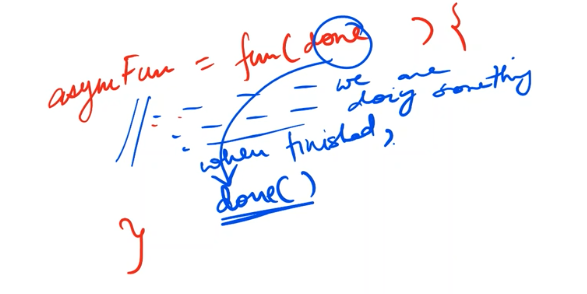 asynFun = fun( done ) {
// we are
doing something
when finished,
done( )
}